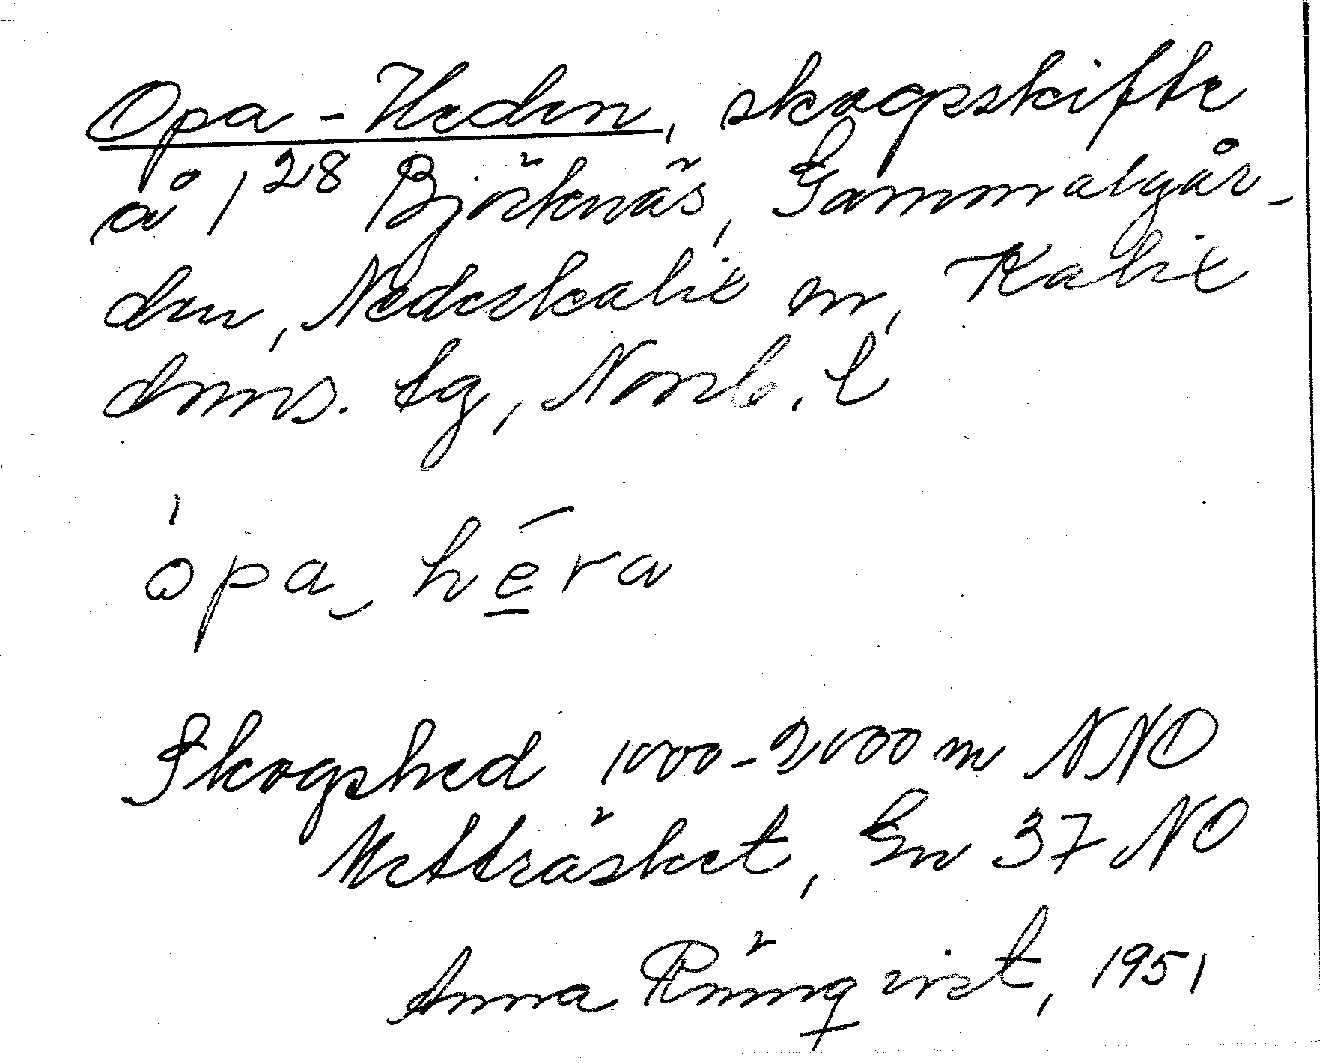 Opa-Heden, skogsskifte
å 1²⁸ Björknäs, Gammalgår-
den, Nederkalix sn, Kalix
dmns. tg, Norrb. l
ópa‿hēra
Skogshed 1000-2000 m NNO
Metträsket, Gn 37 NO
Anna Rönnqvist, 1951